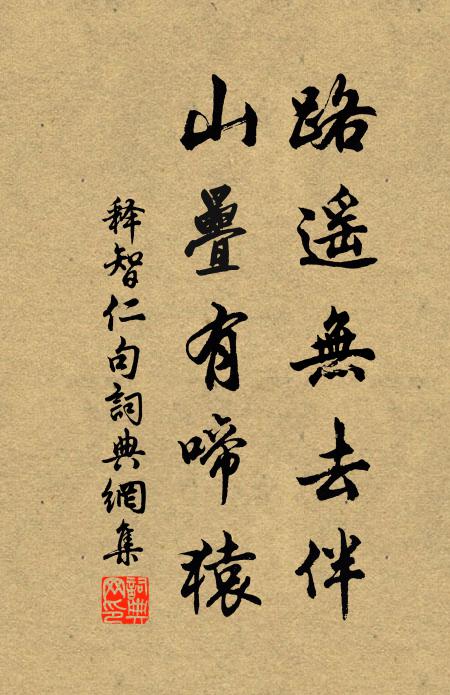 路遥無去伴
山疊有啼猿
释智仁句詞典網集
詞典网印